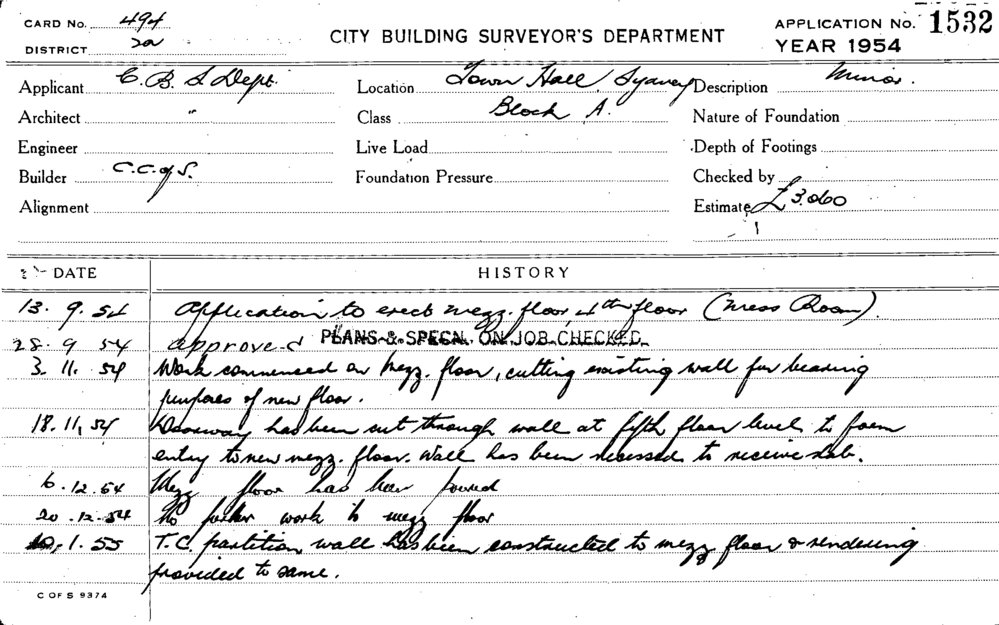 CARD No. 494
DISTRICT 2a
CITY BUILDING SURVEYOR'S DEPARTMENT
APPLICATION No. 1532
YEAR 1954
Applicant C. B. S Dept.
Location Town Hall, Sydney
Description Minor.
Architect "
Class Block A.
Nature of Foundation
Engineer
Live Load
Depth of Footings
Builder C.C. of S.
Foundation Pressure
Checked by
Alignment
Estimate £3,000
DATE HISTORY
13. 9. 54 Application to erect mezz. floor, 4th floor (Mess Room).
28. 9 54 approved PLANS & SPECN. ON JOB CHECKED.
3. 11. 54 Work commenced on Mezz. floor, cutting existing wall for bearing
purposes of new floor.
18. 11, 54 Doorway has been cut through wall at fifth floor level to form
entry to new mezz. floor. Wall has been recessed to receive slab.
6. 12. 54 Mezz floor has been poured
20. 12. 54 No further work to mezz floor
1. 55 T.C. partition wall has been constructed to mezz floor & rendering
provided to same.
C OF S 9374